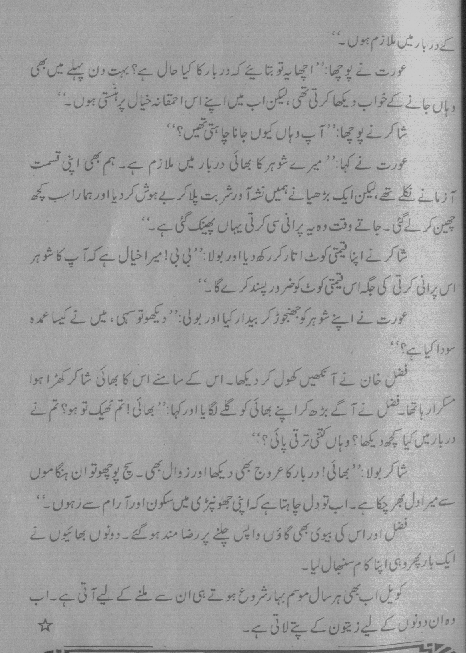 کے دربار میں ملازم ہوں۔‘‘
عورت نے پوچھا: ’’اچھا یہ تو بتایئے کہ دربار کا کیا حال ہے؟ بہت دن پہلے میں بھی
وہاں جانے کے خواب دیکھا کرتی تھی، لیکن اب میں اپنے اس احمقانہ خیال پر ہنستی ہوں۔‘‘
شاکر نے پوچھا: ’’آپ وہاں کیوں جانا چاہتی تھیں؟‘‘
عورت نے کہا: ’’میرے شوہر کا بھائی دربار میں ملازم ہے۔ ہم بھی اپنی قسمت
آزمانے نکلے تھے، لیکن ایک بڑھیا نے ہمیں نشہ آور شربت پلا کر بے ہوش کر دیا اور ہمارا سب کچھ
چھین کر لے گئی۔ جاتے وقت وہ یہ پرانی سی کرتی یہاں پھینک گئی ہے۔‘‘
شاکر نے اپنا قیمتی کوٹ اتار کر رکھ دیا اور بولا: ’’بی بی! میرا خیال ہے کہ آپ کا شوہر
اس پرانی کرتی کی جگہ اس قیمتی کوٹ کو ضرور پسند کرے گا۔‘‘
عورت نے اپنے شوہر کو جھنجوڑ کر بیدار کیا اور بولی: ’’دیکھو تو سہی، میں نے کیسا عمدہ
سودا کیا ہے؟‘‘
فضل خان نے آنکھیں کھول کر دیکھا۔ اس کے سامنے اس کا بھائی شاکر کھڑا ہوا
مسکرا رہا تھا۔ فضل نے آگے بڑھ کر اپنے بھائی کو گلے لگایا اور کہا: ’’بھائی! تم ٹھیک تو ہو؟ تم نے
دربار میں کیا کچھ دیکھا؟ وہاں کتنی ترقی پائی؟‘‘
شاکر بولا: ’’بھائی! دربار کا عروج بھی دیکھا اور زوال بھی۔ سچ پوچھو تو ان ہنگاموں
سے میرا دل بھر چکا ہے۔ اب تو دل چاہتا ہے کہ اپنی جھونپڑی میں سکون اور آرام سے رہوں۔‘‘
فضل اور اس کی بیوی بھی گاؤں واپس چلنے پر رضا مند ہو گئے۔ دونوں بھائیوں نے
ایک بار پھر وہی اپنا کام سنبھال لیا۔
کویل اب بھی ہر سال موسم بہار شروع ہوتے ہی ان سے ملنے کے لیے آتی ہے۔ اب
وہ ان دونوں کے لیے زیتون کے پتے لاتی ہے۔ ☆